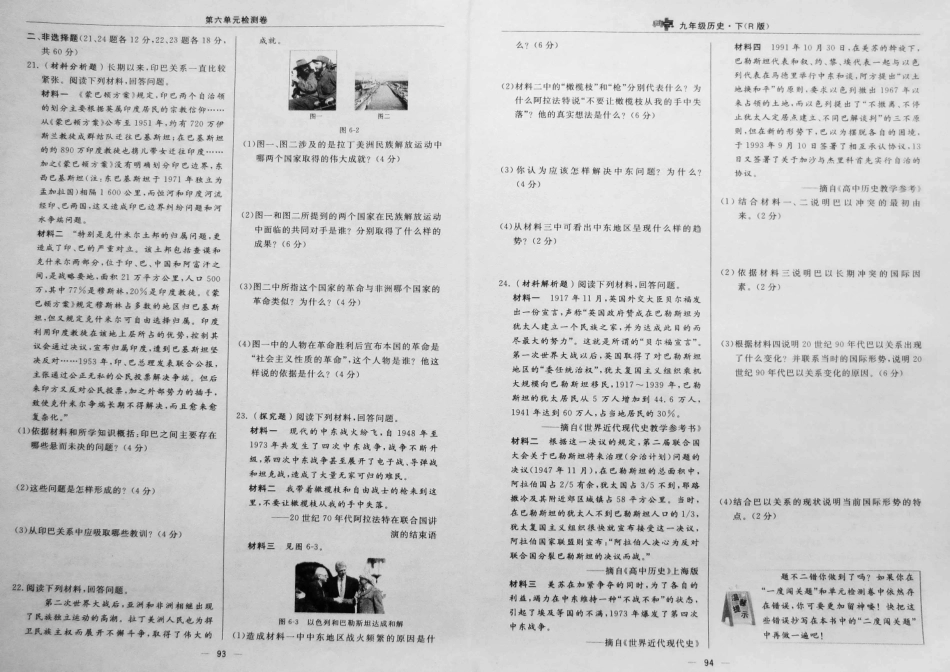 第六单元检测卷
二、非选择题(21、24题各12分,22、23题各18分,
共60分)
21.(材料分析题)长期以来,印巴关系一直比较
紧张。阅读下列材料,回答问题。
材料一 《蒙巴顿方案》规定,印巴两个自治领
的划分主要根据英属印度居民的宗教信仰……
从《蒙巴顿方案》公布至1951年,约有720万伊
斯兰教徒成群结队迁往巴基斯坦;在巴基斯坦
的约890万印度教徒也携儿带女迁往印度……
加之《蒙巴顿方案》没有明确划分印巴边界,东
西巴基斯坦(注:东巴基斯坦于1971年独立为
孟加拉国)相隔1 600公里,而恒河和印度河流
经印、巴两国,这又造成印巴边界纠纷问题和河
水争端问题。
材料二 “特别是克什米尔土邦的归属问题,更
造成了印、巴的严重对立。该土邦包括查谟和
克什米尔两部分,位于印、巴、中国和阿富汗之
间,是战略要地,面积21万平方公里,人口500
万,其中77%是穆斯林,20%是印度教徒。《蒙
巴顿方案》规定穆斯林占多数的地区归巴基斯
坦,但又规定克什米尔可自由选择归属。印度
利用印度教徒在该地上层所占的优势,控制其
议会通过决议,宣布归属印度,遭到巴基斯坦坚
决反对……1953年,印、巴总理发表联合公报,
主张通过公正无私的公民投票解决争端。但后
来印方又反对公民投票,加之外部势力的插手,
致使克什米尔争端长期不得解决,而且愈来愈
复杂化。”
(1)依据材料和所学知识概括:印巴之间主要存在
哪些悬而未决的问题?(4分)
(2)这些问题是怎样形成的?(4分)
(3)从印巴关系中应吸取哪些教训?(4分)
22.阅读下列材料,回答问题。
第二次世界大战后,亚洲和非洲相继出现
了民族独立运动的高潮。拉丁美洲人民也为捍
卫民族主权而展开不懈斗争,取得了伟大的
— 93 —
成就。
图一 图二
图6-2
(1)图一、图二涉及的是拉丁美洲民族解放运动中
哪两个国家取得的伟大成就?(4分)
(2)图一和图二所提到的两个国家在民族解放运动
中面临的共同对手是谁?分别取得了什么样的
成果?(6分)
(3)图二中所指这个国家的革命与非洲哪个国家的
革命类似?为什么?(4分)
(4)图一中的人物在革命胜利后宣布本国的革命是
“社会主义性质的革命”,这个人物是谁?他这
样说的依据是什么?(4分)
23.(探究题)阅读下列材料,回答问题。
材料一 现代的中东战火纷飞,自1948年至
1973年共发生了四次中东战争,战争不断升
级,第四次中东战争甚至展开了电子战、导弹战
和坦克战,造成了大量无家可归的难民。
材料二 我带着橄榄枝和自由战士的枪来到这
里,不要让橄榄枝从我的手中失落。
——20世纪70年代阿拉法特在联合国讲
演的结束语
材料三 见图6-3。
图6-3 以色列和巴勒斯坦达成和解
(1)造成材料一中中东地区战火频繁的原因是什
九年级历史·下(R版)
么?(6分)
(2)材料二中的“橄榄枝”和“枪”分别代表什么?为
什么阿拉法特说“不要让橄榄枝从我的手中失
落”?他的真实想法是什么?(6分)
(3)你认为应该怎样解决中东问题?为什么?
(4分)
(4)从材料三中可看出中东地区呈现什么样的趋
势?(2分)
24.(材料解析题)阅读下列材料,回答问题。
材料一 1917年11月,英国外交大臣贝尔福发
出一份宣言,声称“英国政府赞成在巴勒斯坦为
犹太人建立一个民族之家,并为达成此目的而
尽最大的努力”。这就是所谓的“贝尔福宣言”。
第一次世界大战以后,英国取得了对巴勒斯坦
地区的“委任统治权”,犹太复国主义组织乘机
大规模向巴勒斯坦移民,1917~1939年,巴勒
斯坦的犹太居民从5万人增加到44.6万人,
1941年达到60万人,占当地居民的30%。
——摘自《世界近代现代史教学参考书》
材料二 根据这一决议的规定,第二届联合国
大会关于巴勒斯坦将来治理(分治计划)问题的
决议(1947年11月),在巴勒斯坦的总面积中,
阿拉伯国占2/5有余,犹太国占3/5不到,耶路
撒冷及其附近郊区城镇占58平方公里。当时,
在巴勒斯坦的犹太人不到巴勒斯坦人口的1/3,
犹太复国主义组织很快就宣布接受这一决议,
阿拉伯国家联盟则宣布:“阿拉伯人决心为反对
联合国分裂巴勒斯坦的决议而战。”
——摘自《高中历史》上海版
材料三 美苏在加紧争夺的同时,为了各自的
利益,竭力在中东维持一种“不战不和”的状态,
引起了埃及等国的不满,1973年爆发了第四次
中东战争。
——摘自《世界近代现代史》
— 94 —
材料四 1991年10月30日,在美苏的斡旋下,
巴勒斯坦代表和叙、约、黎、埃代表一起与以色
列代表在马德里举行中东和谈,阿方提出“以土
地换和平”的原则,要求以色列撤出1967年以
来占领的土地,而以色列提出了“不撤离、不停
止犹太人定居点建立、不同巴解谈判”的三不原
则,但在新的形势下,巴以为摆脱各自的困境,
于1993年9月10日签署了相互承认协议,13
日又签署了关于加沙与杰里科首先实行自治的
协议。
——摘自《高中历史教学参考》
(1)结合材料一、二说明巴以冲突的最初由
来。(2分)
(2)依据材料三说明巴以长期冲突的国际因
素。(2分)
(3)根据材料四说明20世纪90年代巴以关系出现
了什么变化?并联系当时的国际形势,说明20
世纪90年代巴以关系变化的原因。(6分)
(4)结合巴以关系的现状说明当前国际形势的特
点。(2分)
温馨提示
题不二错你做到了吗?如果你在
“一度闯关题”和单元检测卷中依然存
在错误,你可要更加留神喽!快把这
些错误抄写在本书中的“二度闯关题”
中再做一遍吧!